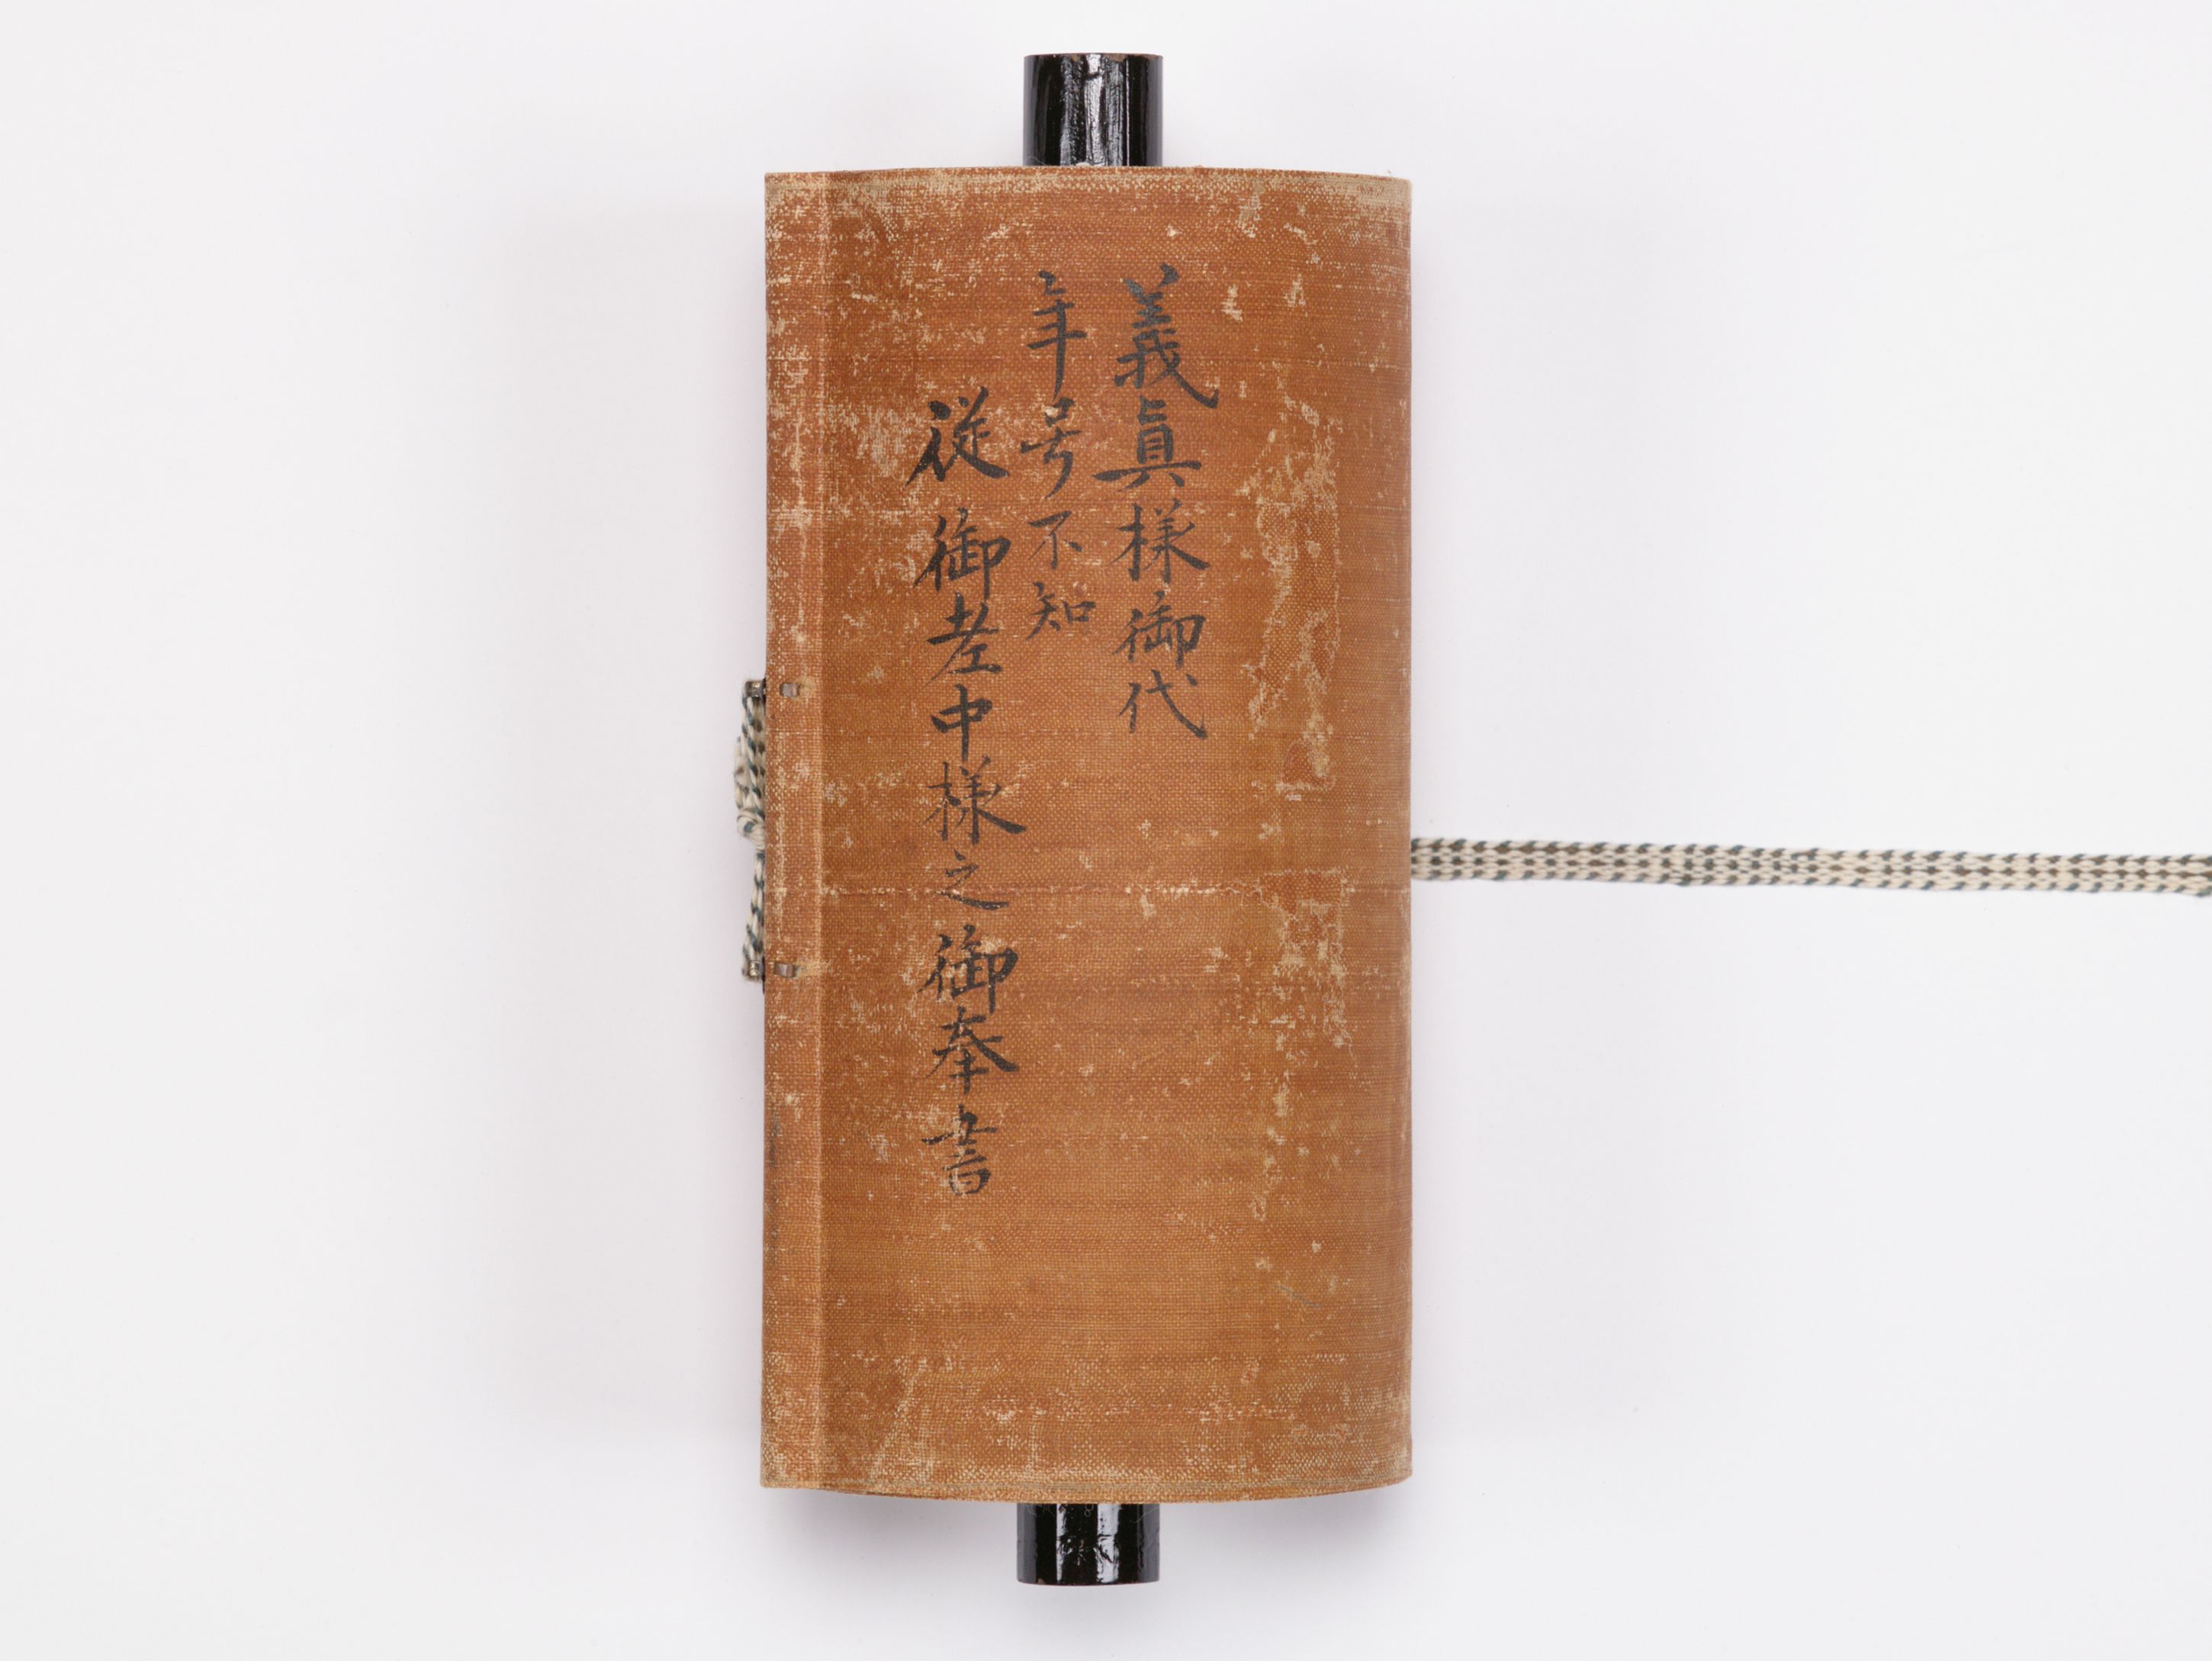 義眞様御代
年号不知
従御老中様之御奉書